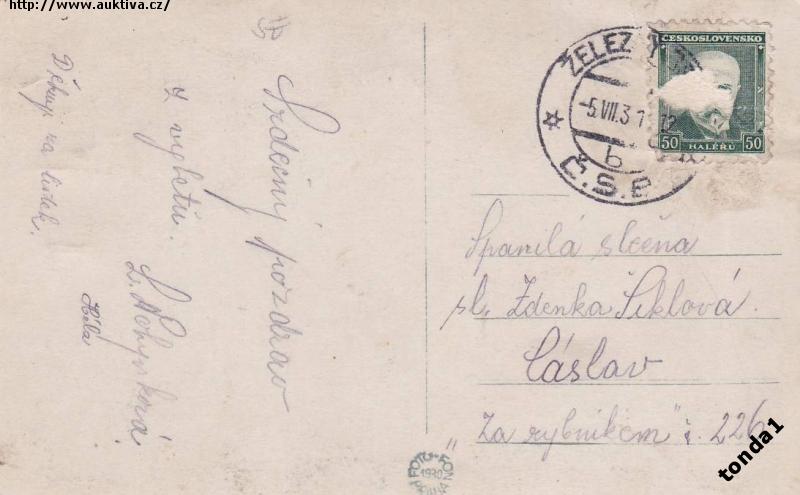 http://www.auktiva.cz/
Srdečný pozdrav
z výletu.
L.
Héla.
Děkuji za lístek.
ŽELEZ
-5.VII.3
b
Č.S.
ČESKOSLOVENSKO
50 HALÉŘŮ 50
Spanilá slečna
sl. Zdenka Šiklová.
Čáslav
"Za rybníkem" č. 226
FOTO-FON
1930
tonda1